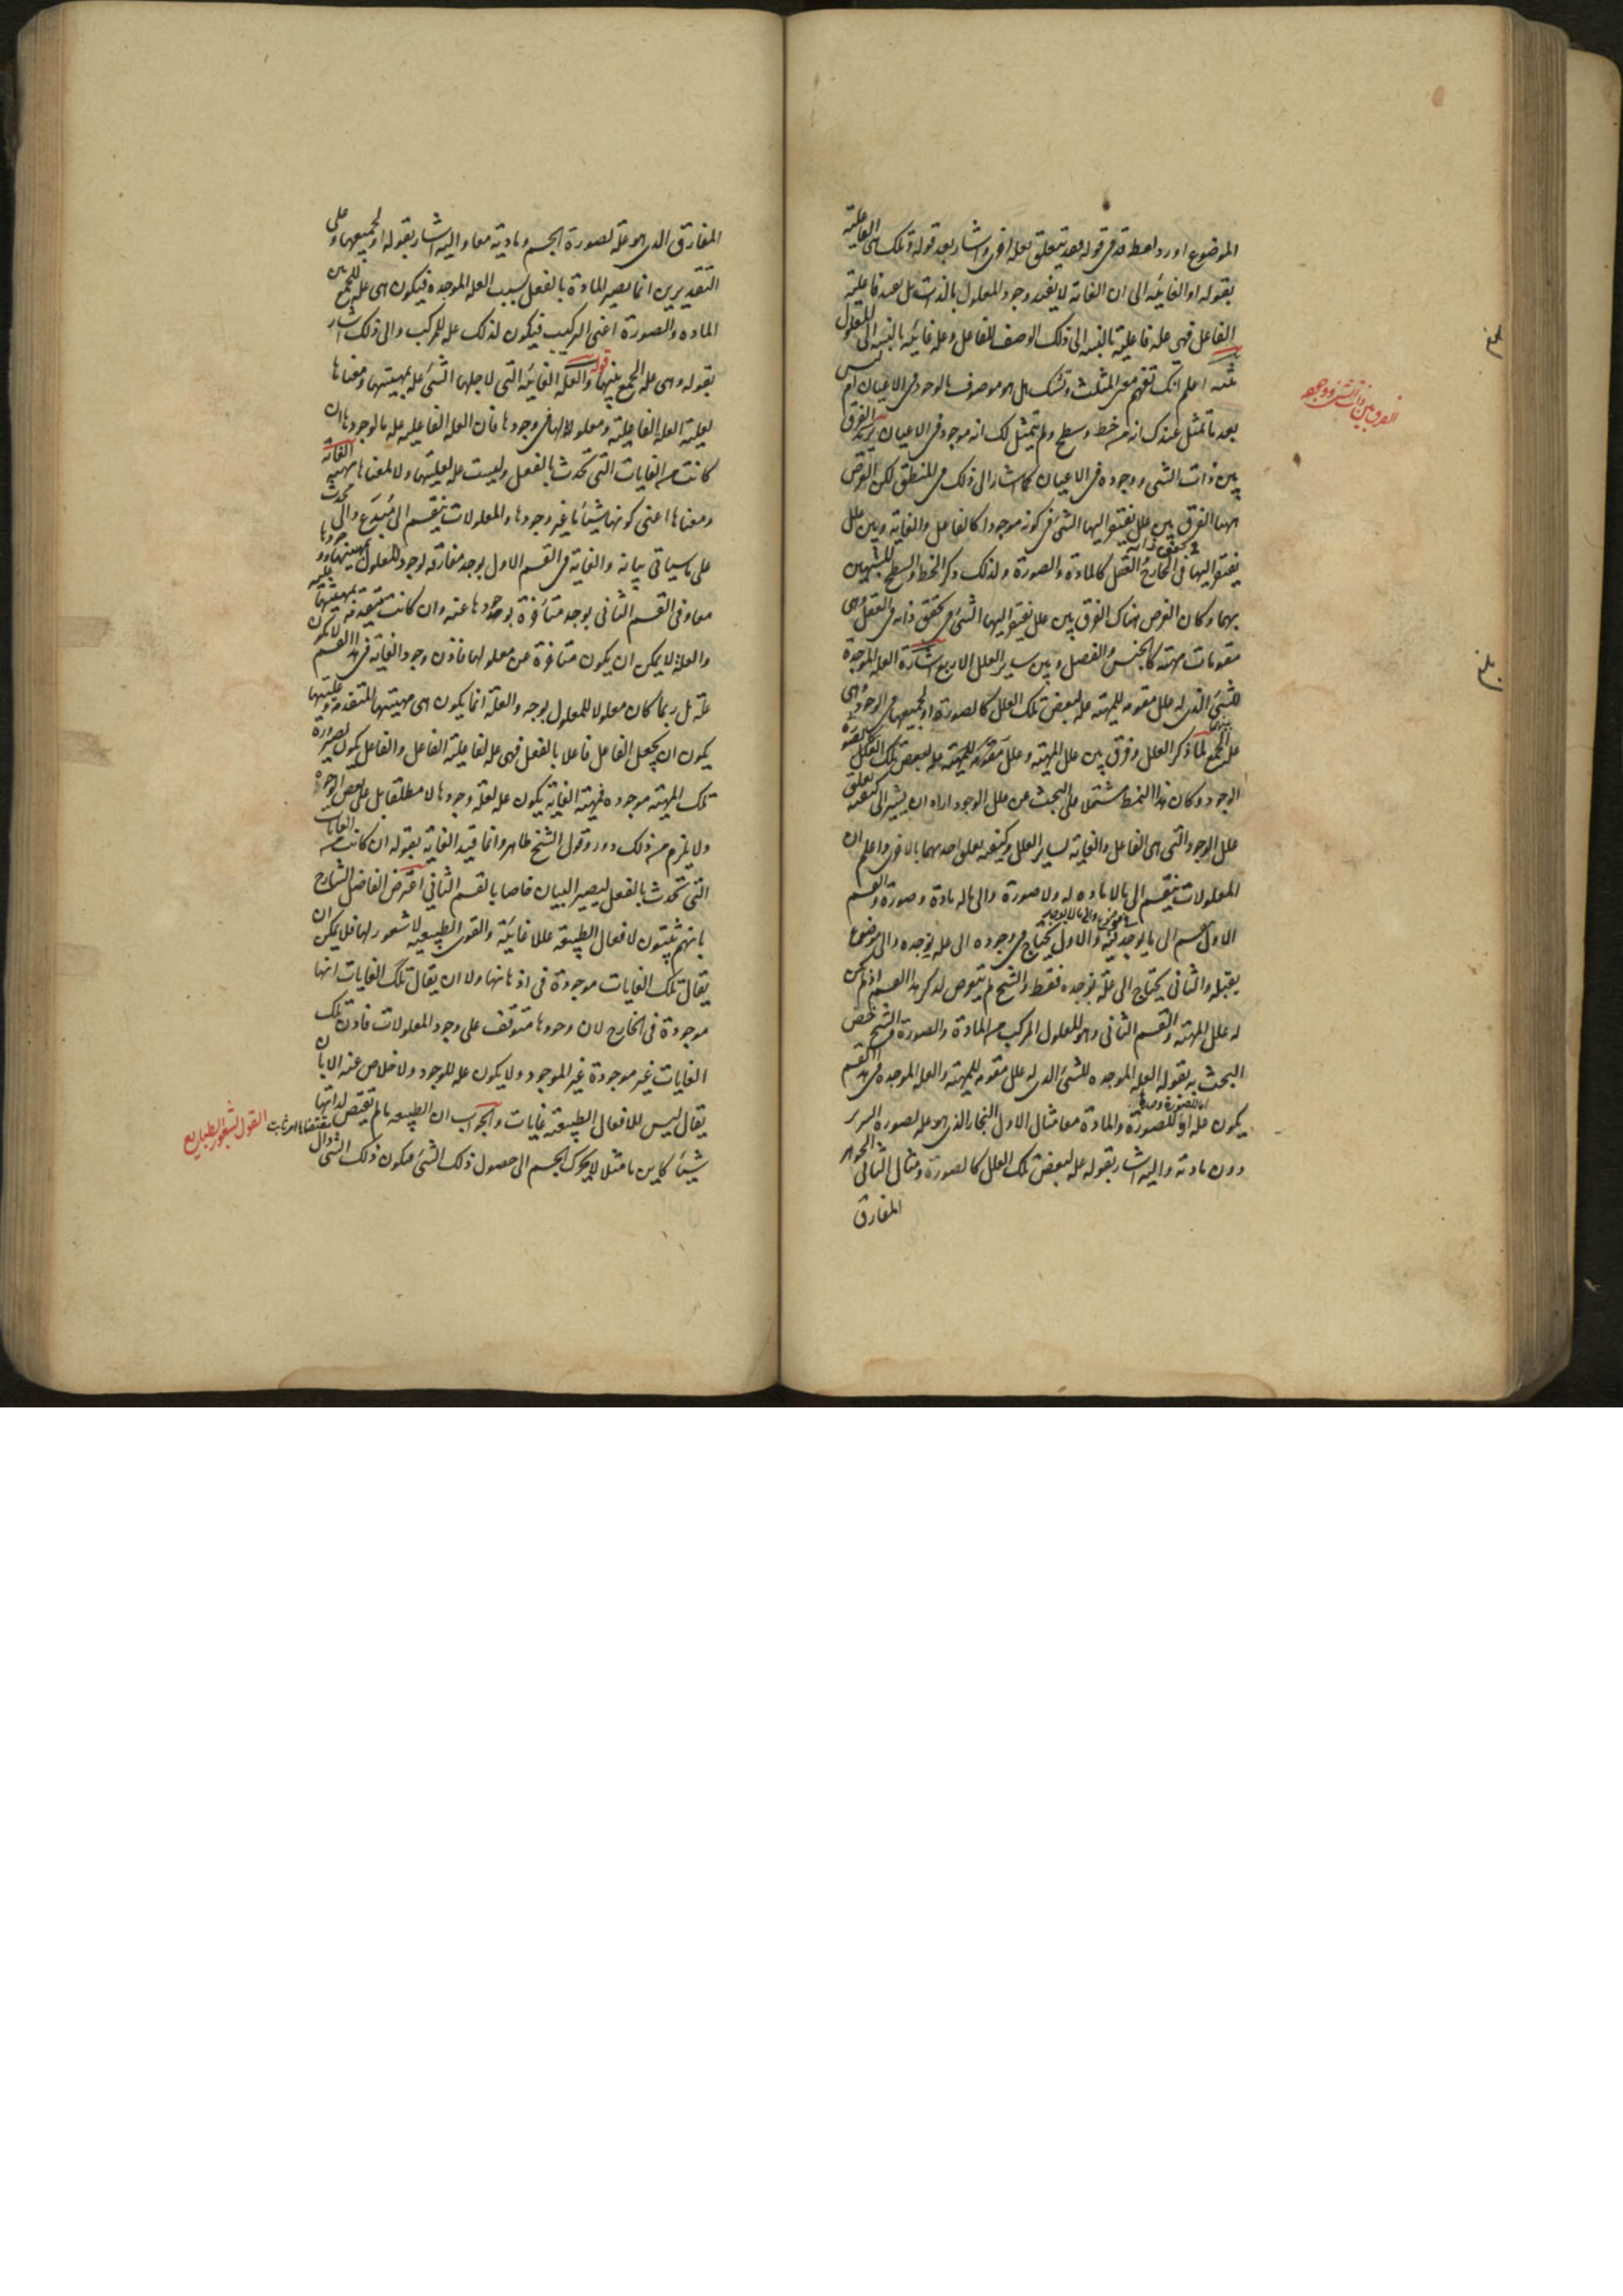 الموضوع اورد لفظة قد فى قوله فقد يتعلق بعلة اخرى واشار بعد قوله وتلك هى الفاعلية
بقوله او الغائية الى ان الغاية لا يفيد وجود المعلول بالذات بل يفيد فاعلية
الفاعل فهى علة فاعلية بالنسبة الى ذلك الوصف للفاعل وعلة غائية بالنسبة الى المعلول
تنبيه اعلم انك تفهم معنى المثلث وتشك هل هو موصوف بالوجود فى الاعيان ام ليس
بعد ما تمثل عندك انه من خط وسطح ولم يتمثل لك انه موجود فى الاعيان يريد الفرق
بين ذات الشىء ووجوده فى الاعيان كما اشار الى ذلك فى المنطق لكن الغرض
ههنا الفرق بين علل يفتقر اليها الشىء فى كونه موجودا كالفاعل والغاية وبين علل
يفتقر اليها فى تحقق ذاته فى الخارج او العقل كالمادة والصورة ولذلك ذكر الخط والسطح الشبيهين
بهما وكان الغرض هناك الفرق بين علل يفتقر اليها الشىء فى تحقق ذاته فى العقل وهى
مقومات مهيته كالجنس والفصل وبين ساير العلل الاربع اشارة العلة الموجدة
للشىء الذى له علل مقومة للمهية علة لبعض تلك العلل كالصورة او لجميعها فى الوجود وهى
علة الجمع بينها لما ذكر العلل وفرق بين علل المهية وعلل
الوجود وكان هذا النمط مشتملا على البحث عن علل الوجود اراد ان يشير الى كيفية تعلق
علل الوجود التى هى الفاعل والغاية لساير العلل وكيفية تعلق احديهما بالاخرى واعلم ان
المعلولات ينقسم الى ما لا مادة له ولا صورة والى ما له مادة وصورة والقسم
الاول ينقسم الى ما يوجد فى موضوع والى ما لا يوجد فيه والاول يحتاج فى وجوده الى علة يوجده والى موضوع
يقبله والثانى يحتاج الى علة يوجده فقط والشيخ لم يتعرض لذكر هذا القسم اذ لم يكن
له علل المهية والقسم الثانى وهو المعلول المركب من المادة والصورة والشيخ خص
البحث به بقوله العلة الموجدة للشىء الذى له علل مقومة للمهية والعلة الموجدة فى هذا القسم
يكون علة اما للصورة وحدها او للصورة والمادة معا مثال الاول النجار الذى هو علة لصورة السرير
دون مادته واليه اشار بقوله علة لبعض تلك العلل كالصورة ومثال الثانى الجوهر
المفارق
الفرق بين ذات الشىء ووجوده
المفارق الذى هو علة لصورة الجسم ومادته معا واليه اشار بقوله او لجميعها وعلى
التقديرين انما يصير المادة بالفعل بسبب العلة الموجدة فيكون هى علة للجمع بين
المادة والصورة اعنى التركيب فيكون لذلك علة للمركب والى ذلك اشار
بقوله وهى علة الجمع بينهما قوله والعلة الغائية التى لاجلها الشىء علة بمهيتها ومعناها
لعلية العلة الفاعلية ومعلولة لها فى وجودها فان العلة الفاعلية علة ما لوجودها ان
كانت من الغايات التى تحدث بالفعل وليست علة لعليتها ولا لمعناها مهية الغاية
ومعناها اعنى كونها شيئا ما غير وجودها والمعلولات ينقسم الى مبدع والى محدث
على ما سياتى بيانه والغاية فى القسم الاول يوجد مقارنة لوجود المعلول بمهيتها ووجودها
معا وفى القسم الثانى يوجد متاخرة بوجودها عنه وان كانت متقدمة بمهيتها عليه
والعلة لا يمكن ان يكون متاخرة عن معلولها فاذن وجود الغاية فى هذا القسم لا يكون
علة بل ربما كان معلولا للمعلول بوجه والعلة انما يكون هى مهيتها المتقدمة وعليتها
يكون ان يجعل الفاعل فاعلا بالفعل فهى علة لفاعلية الفاعل والفاعل يكون علة لصيرورة
تلك المهية موجودة فمهية الغاية يكون علة لعلة وجودها لا مطلقا بل على بعض الوجوه
ولا يلزم من ذلك دور وقول الشيخ ظاهر وانما قيد الغاية بقوله ان كانت من الغايات
التى تحدث بالفعل ليصير البيان خاصا بالقسم الثانى اعترض الفاضل الشارح
بانهم يثبتون لافعال الطبيعية عللا غائية والقوى الطبيعية لا شعور لها فلا يمكن ان
يقال تلك الغايات موجودة فى اذهانها ولا ان يقال تلك الغايات انها
موجودة فى الخارج لان وجودها متوقف على وجود المعلولات فاذن تلك
الغايات غير موجودة غير الموجود ولا يكون علة للموجود ولا خلاص عنه الا بان
يقال ليس للافعال الطبيعية غايات والجواب ان الطبيعة ما لم تقتض لذاتها
شيئا كاين ما مثلا لا يحرك الجسم الى حصول ذلك الشىء فيكون ذلك الشىء
القول بشعور الطبايع